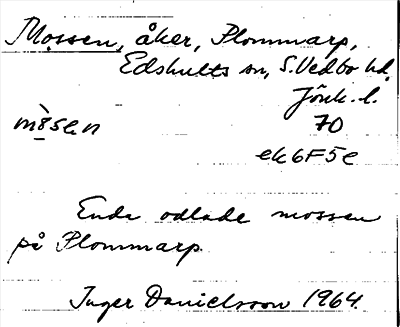 Mossen, åker, Plommarp,
Edshults sn, S. Vedbo hd,
Jönk. l.
70
ek6F5e
Enda odlade mossen
på Plommarp
Inger Danielsson 1964.